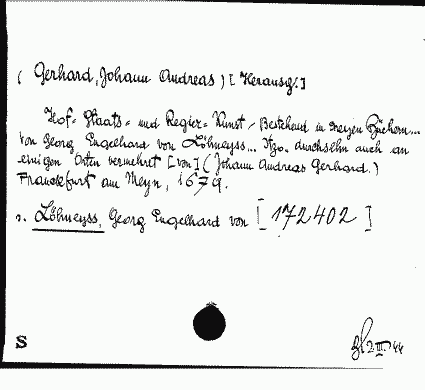 ( Gerhard, Johann Andreas ) [ Herausg. ]
Hof- Staats- und Regier- Kunst, Bestehend in dreyen Büchern...
von Georg Engelhard von Löhneyss... Itzo. durchsehn auch an
einigen Orten vermehret [ von ] ( Johann Andreas Gerhard. )
Franckfurt am Meyn, 1679.
s. Löhneyss, Georg Engelhard von [ 172402 ]
S
2. III. 44